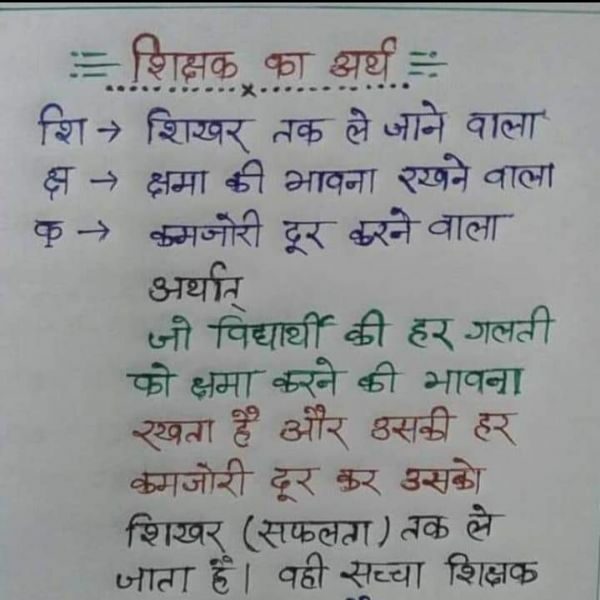 शिक्षक का अर्थ
शि → शिखर तक ले जाने वाला
क्ष → क्षमा की भावना रखने वाला
क → कमजोरी दूर करने वाला
अर्थात्
जो विद्यार्थी की हर गलती
को क्षमा करने की भावना
रखता है और उसकी हर
कमजोरी दूर कर उसको
शिखर (सफलता) तक ले
जाता है। वही सच्चा शिक्षक